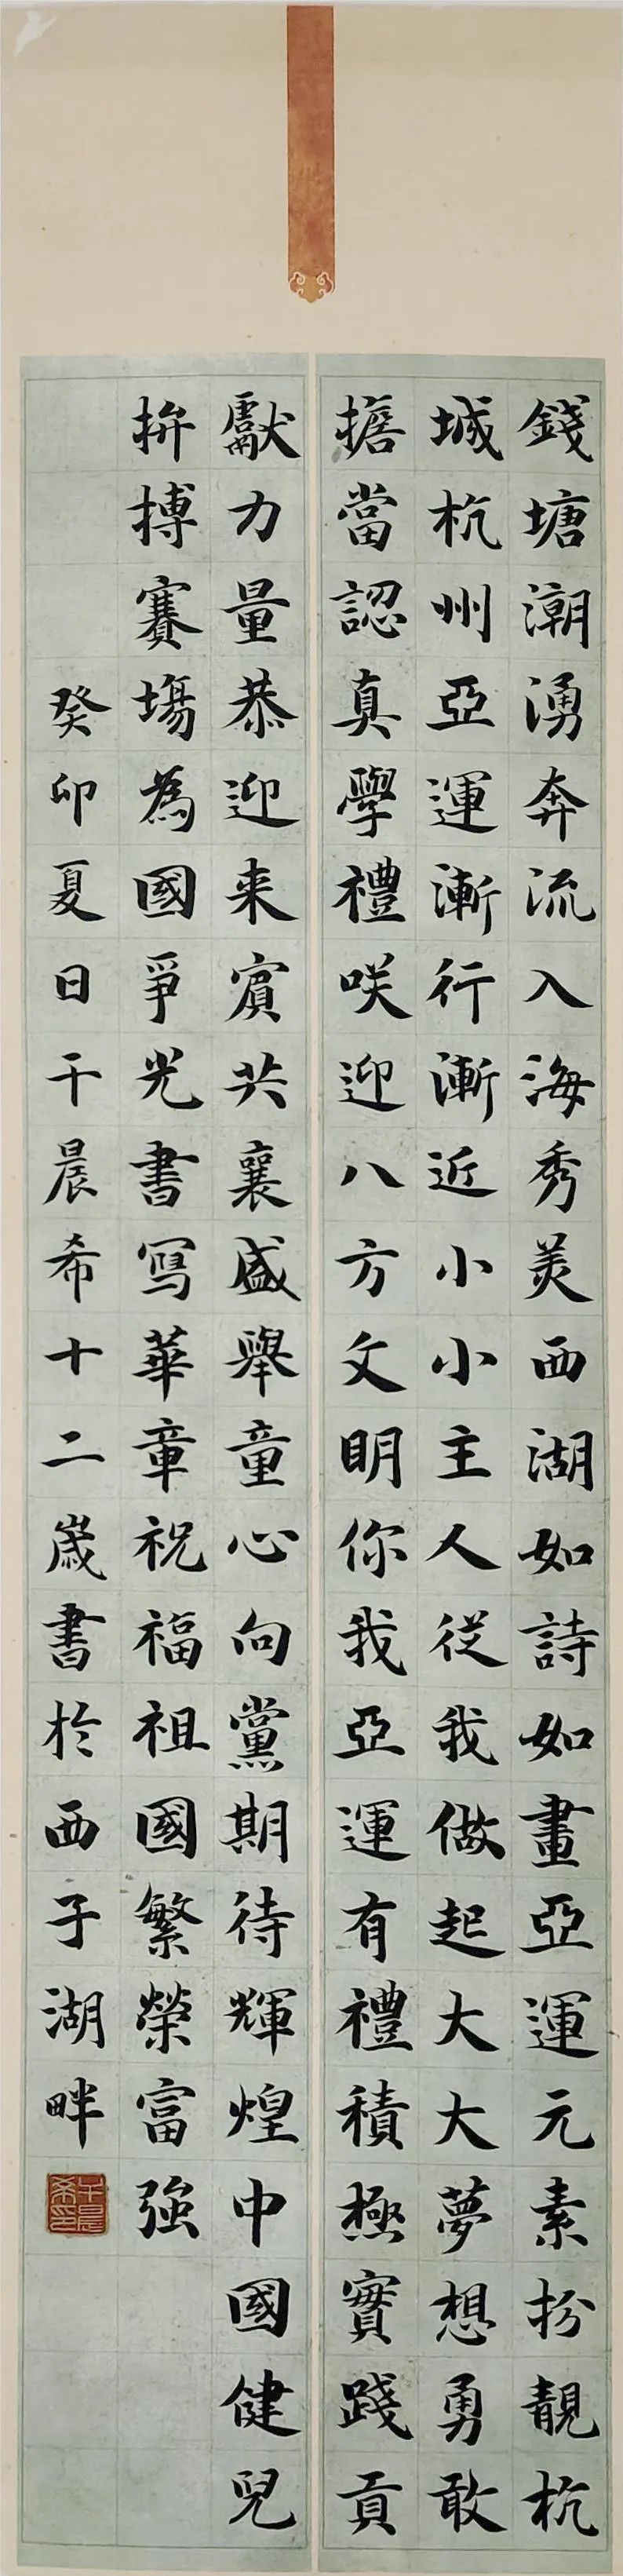 錢塘潮湧奔流入海秀美西湖如詩如畫亞運元素扮靚杭
城杭州亞運漸行漸近小小主人從我做起大大夢想勇敢
擔當認真學禮咲迎八方文明你我亞運有禮積極實踐貢
獻力量恭迎来賓共襄盛舉童心向黨期待輝煌中國健兒
拚搏賽場為國爭光書寫華章祝福祖國繁榮富強
癸卯夏日干晨希十二歲書於西子湖畔